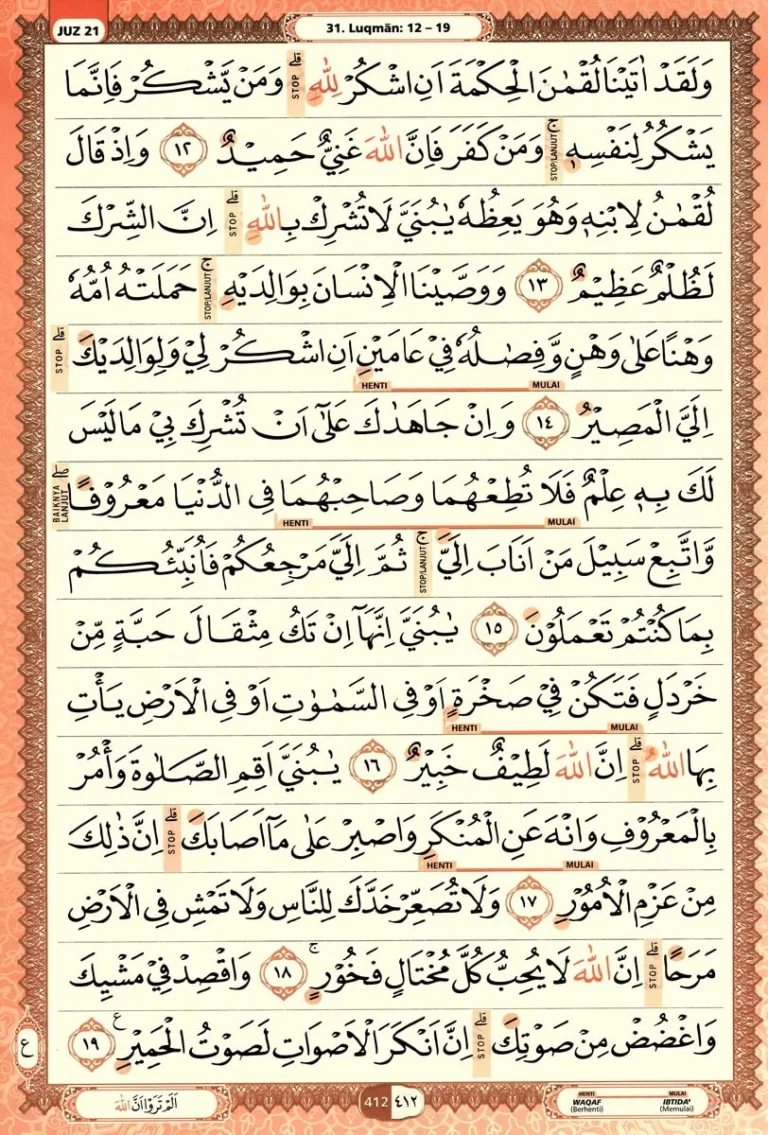 JUZ 21
31. Luqmān: 12 – 19
وَلَقَدْ اٰتَيْنَا لُقْمٰنَ الْحِكْمَةَ اَنِ اشْكُرْ لِلّٰهِ ۗ وَمَنْ يَّشْكُرْ فَاِنَّمَا
STOP
يَشْكُرُ لِنَفْسِهٖ ۚ وَمَنْ كَفَرَ فَاِنَّ اللّٰهَ غَنِيٌّ حَمِيْدٌ ١٢ وَاِذْ قَالَ
STOP/LANJUT
لُقْمٰنُ لِابْنِهٖ وَهُوَ يَعِظُهٗ يٰبُنَيَّ لَا تُشْرِكْ بِاللّٰهِ ۗ اِنَّ الشِّرْكَ
STOP
لَظُلْمٌ عَظِيْمٌ ١٣ وَوَصَّيْنَا الْاِنْسَانَ بِوَالِدَيْهِ ۚ حَمَلَتْهُ اُمُّهٗ
STOP/LANJUT
وَهْنًا عَلٰى وَهْنٍ وَّفِصَالُهٗ فِيْ عَامَيْنِ اَنِ اشْكُرْ لِيْ وَلِوَالِدَيْكَ ۗ
STOP
HENTI MULAI
اِلَيَّ الْمَصِيْرُ ١٤ وَاِنْ جَاهَدٰكَ عَلٰٓى اَنْ تُشْرِكَ بِيْ مَا لَيْسَ
لَكَ بِهٖ عِلْمٌ فَلَا تُطِعْهُمَا وَصَاحِبْهُمَا فِى الدُّنْيَا مَعْرُوْفًا ۖ
BAIKNYA LANJUT
HENTI MULAI
وَّاتَّبِعْ سَبِيْلَ مَنْ اَنَابَ اِلَيَّ ۚ ثُمَّ اِلَيَّ مَرْجِعُكُمْ فَاُنَبِّئُكُمْ
STOP/LANJUT
بِمَا كُنْتُمْ تَعْمَلُوْنَ ١٥ يٰبُنَيَّ اِنَّهَآ اِنْ تَكُ مِثْقَالَ حَبَّةٍ مِّنْ
خَرْدَلٍ فَتَكُنْ فِيْ صَخْرَةٍ اَوْ فِى السَّمٰوٰتِ اَوْ فِى الْاَرْضِ يَأْتِ
HENTI MULAI
بِهَا اللّٰهُ ۗ اِنَّ اللّٰهَ لَطِيْفٌ خَبِيْرٌ ١٦ يٰبُنَيَّ اَقِمِ الصَّلٰوةَ وَأْمُرْ
STOP
بِالْمَعْرُوْفِ وَانْهَ عَنِ الْمُنْكَرِ وَاصْبِرْ عَلٰى مَآ اَصَابَكَ ۗ اِنَّ ذٰلِكَ
STOP
HENTI MULAI
مِنْ عَزْمِ الْاُمُوْرِ ١٧ وَلَا تُصَعِّرْ خَدَّكَ لِلنَّاسِ وَلَا تَمْشِ فِى الْاَرْضِ
مَرَحًا ۗ اِنَّ اللّٰهَ لَا يُحِبُّ كُلَّ مُخْتَالٍ فَخُوْرٍ ۚ ١٨ وَاقْصِدْ فِيْ مَشْيِكَ
STOP
وَاغْضُضْ مِنْ صَوْتِكَ ۗ اِنَّ اَنْكَرَ الْاَصْوَاتِ لَصَوْتُ الْحَمِيْرِ ع ١٩
STOP
ع
اَلَمْ تَرَوْا اَنَّ اللّٰهَ
412 ٤١٢
HENTI MULAI
WAQAF IBTIDA'
(Berhenti) (Memulai)